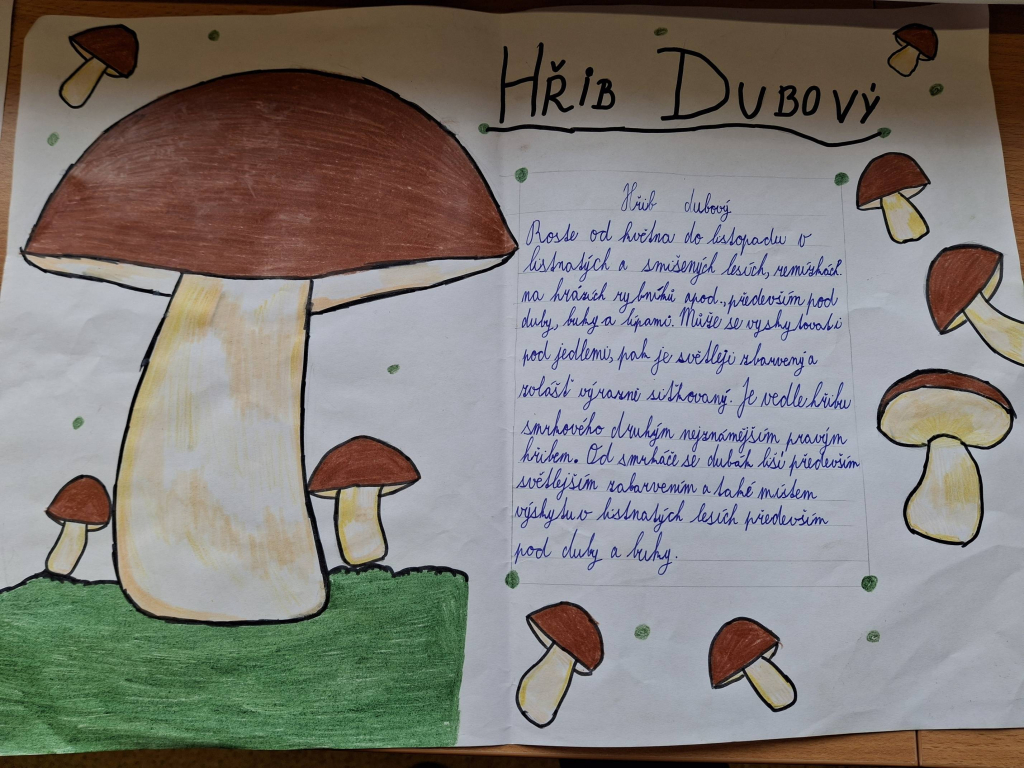 HŘIB DUBOVÝ
Hřib dubový
Roste od května do listopadu v
listnatých a smíšených lesích, remízkách.
na hrázích rybníků apod., především pod
duby, buky a lípami. Může se vyskytovati
pod jedlemi, pak je světleji zbarvený a
zvlášť výrazně síťkovaný. Je vedle hřibu
smrkového druhým nejznámějším pravým
hřibem. Od smrkáče se dubák liší především
světlejším zabarvením a také místem
výskytu v listnatých lesích především
pod duby a buky.